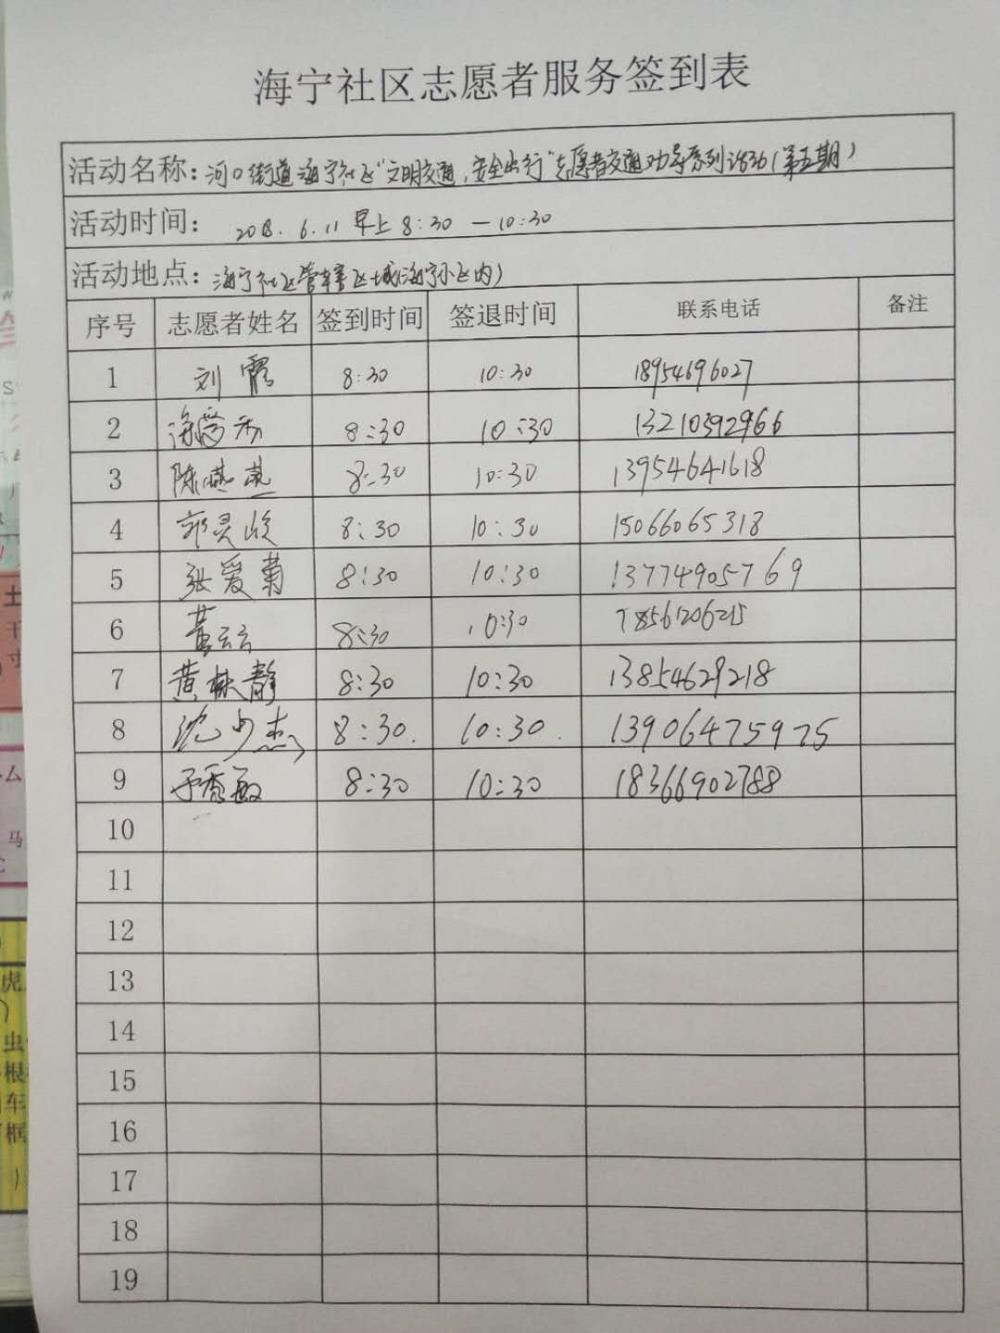 海宁社区志愿者服务签到表
活动名称: 河口街道海宁社区"文明交通，安全出行"志愿者交通劝导系列活动(第五期)
活动时间: 2018.6.11 早上8:30 —10:30
活动地点: 海宁社区管辖区域(海宁小区内)
序号 志愿者姓名 签到时间 签退时间 联系电话 备注
1 刘霞 8:30 10:30 18954696027
2 8:30 10:30 13210392966
3 陈燕燕 8:30 10:30 13954641618
4 郭灵欣 8:30 10:30 15066065318
5 张爱菊 8:30 10:30 13774905769
6 黄云云 8:30 10:30 18561206215
7 黄林静 8:30 10:30 13854629218
8 沈少杰 8:30. 10:30. 13906475975
9 于香敏 8:30 10:30 18366902788
10
11
12
13
14
15
16
17
18
19
土
马
虎
虫
根
车
框